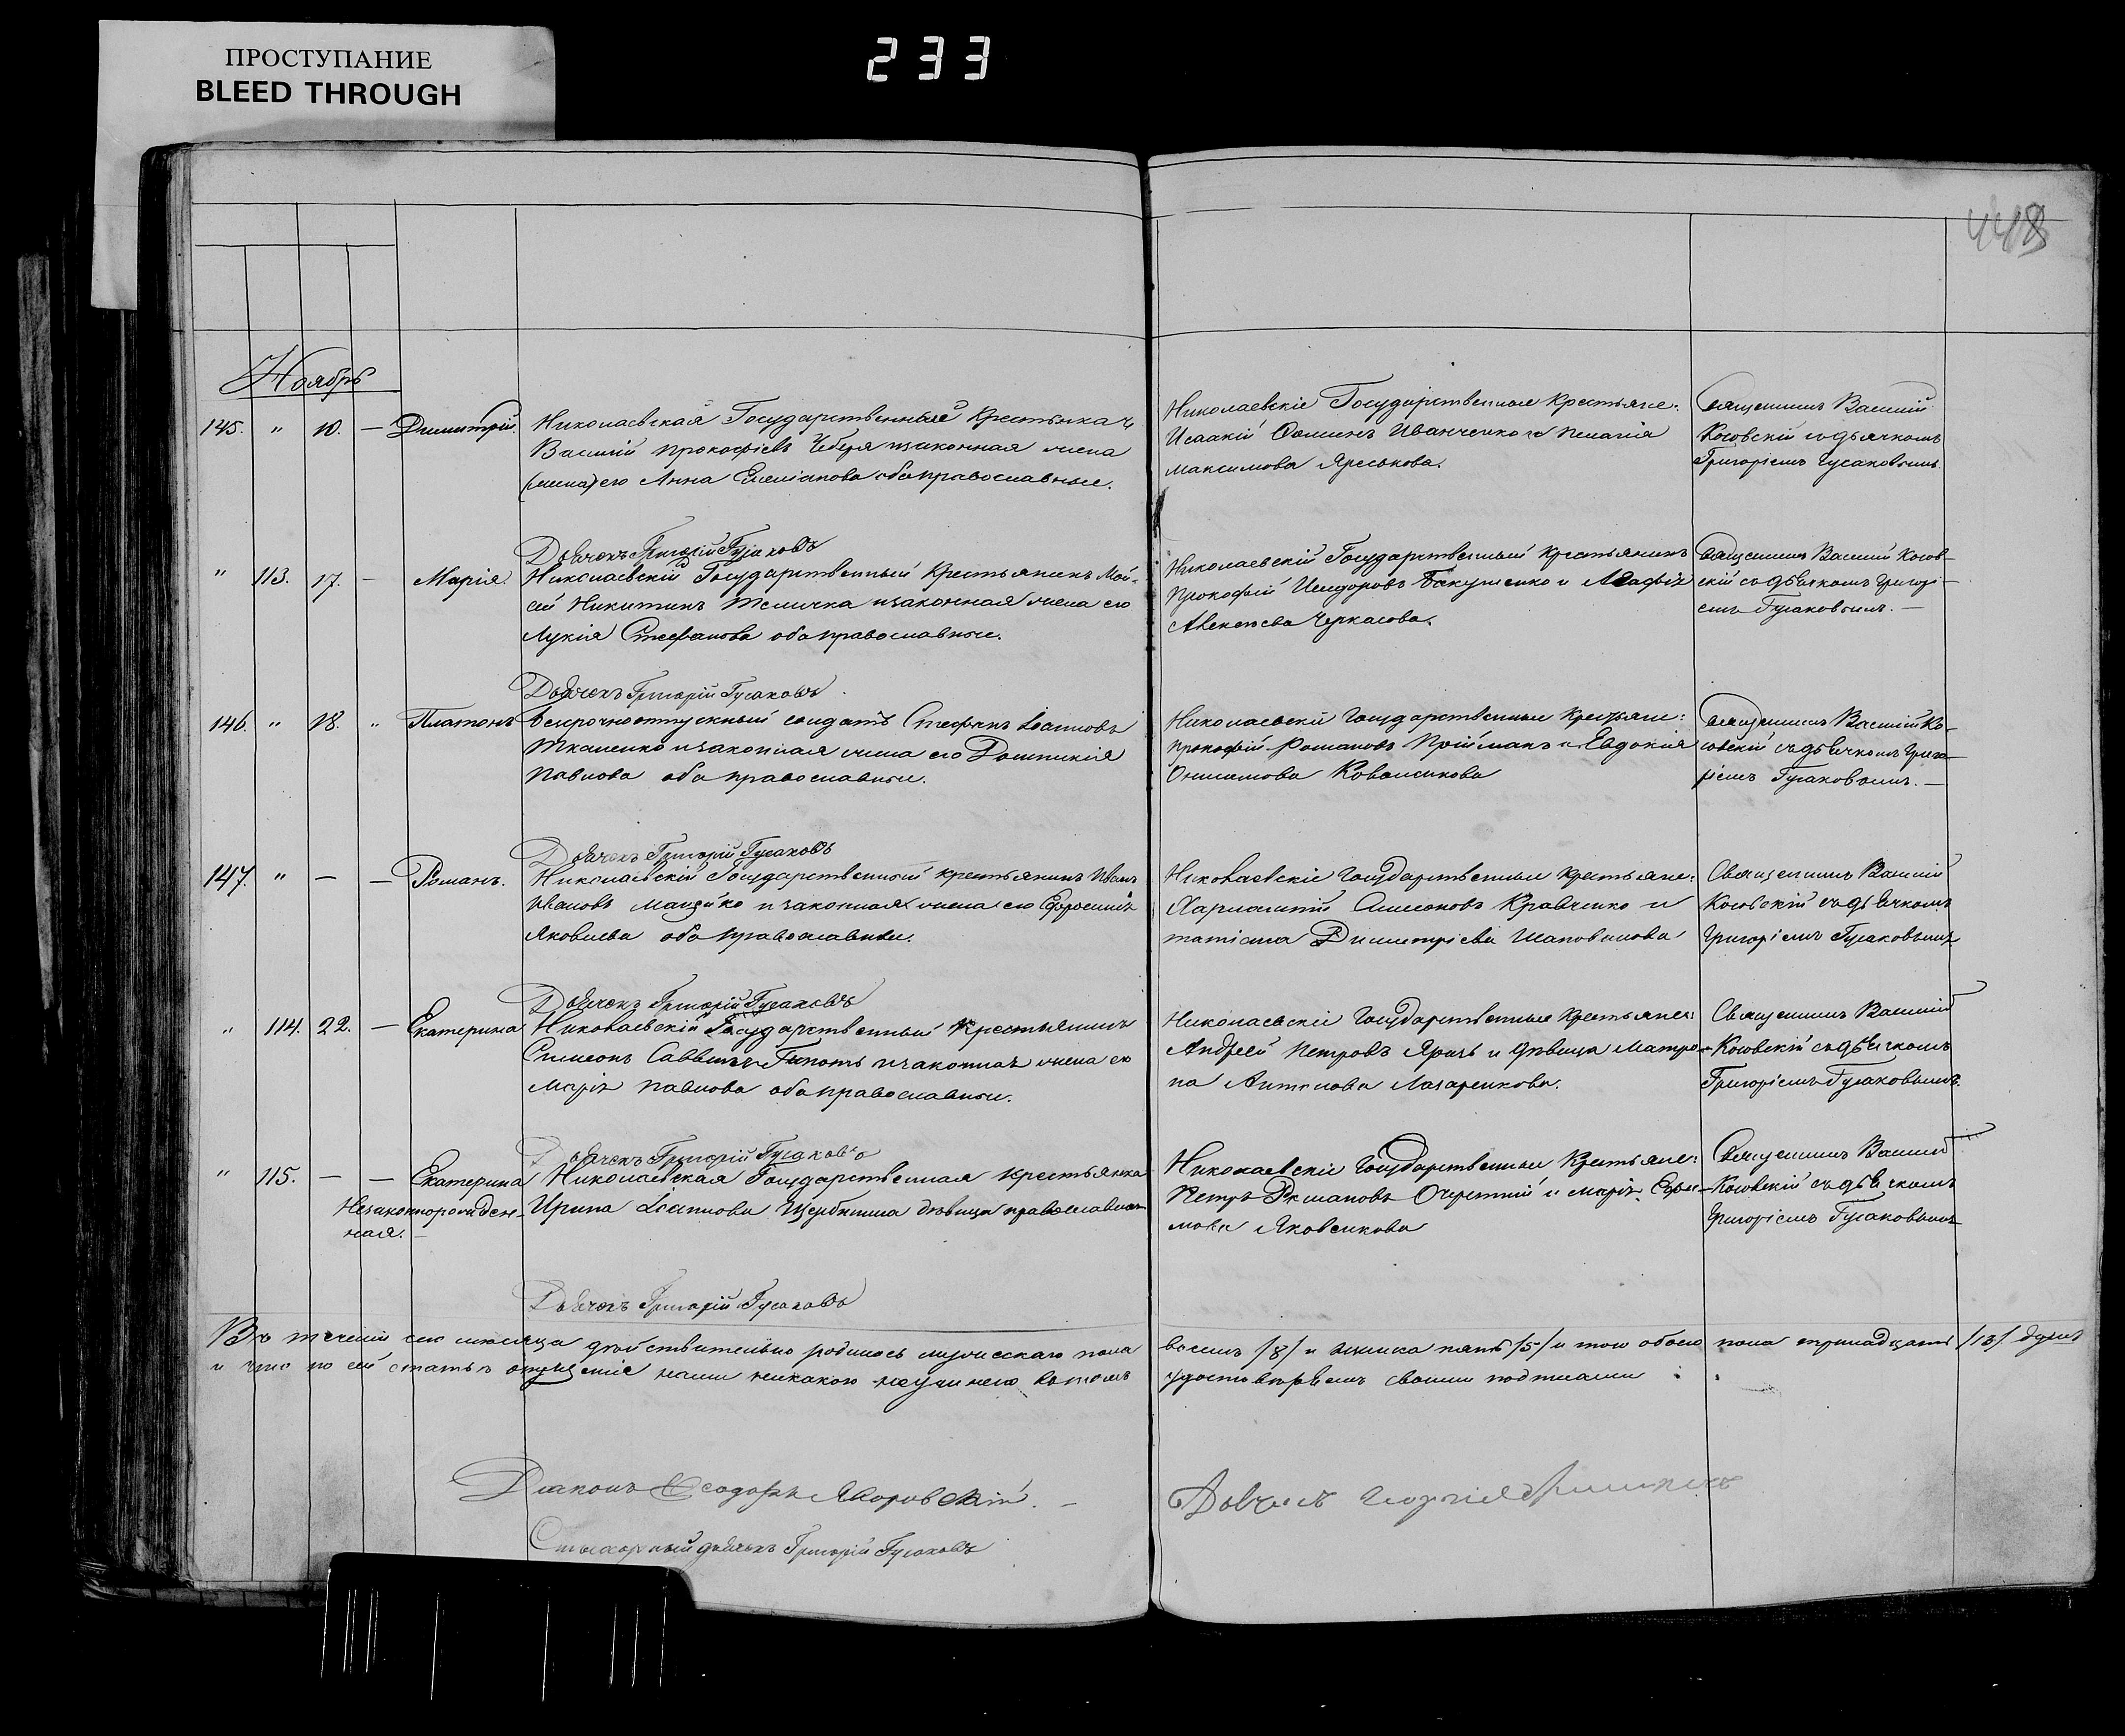 ПРОСТУПАНИЕ
BLEED THROUGH
233
448
Ноябрь
145. " 10. — Димитрій.
Николаевская Государственные крестьянка
Василій Прокофіевъ Чеберя изаконная жена
(жена) его Анна Емеліанова оба православные.
Николаевскіе Государственные крестьяне:
Исаакій Фоминъ Иванченко и Пелагія
Максимова Яреськова.
Священникъ Василій
Косовскій съ дьячкомъ
Григоріемъ Гусаковымъ.
Дьячокъ Григорій Гусаковъ
" 113. 17. — Марія.
Николаевскій Государственный крестьянинъ Мой-
сей Никитинъ Теличка изаконная жена его
Лукія Стефанова оба православные.
Николаевскій Государственный крестьянинъ
Прокофій Исидоровъ Бакуменко и Агафія
Алексѣева Черкасова.
Священникъ Василій Косов-
скій съ дьячкомъ Григорі-
емъ Гусаковымъ. —
Дьячокъ Григорій Гусаковъ.
146. " 18. " Платонъ
безсрочноотпускный солдатъ Стефанъ Іоанновъ
Ткаченко изаконная жена его Домникія
Павлова оба православные.
Николаевскіе Государственные крестьяне:
Прокофій Романовъ Прійманъ и Евдокія
Онисимова Коваликова
Священникъ Василій Ко-
совскій съ дьячкомъ Григо-
ріемъ Гусаковымъ. —
Дьячокъ Григорій Гусаковъ
147. " — — Романъ.
Николаевскій Государственный крестьянинъ Иванъ
Ивановъ изаконная жена его Ефросинія
Яковлева оба православные.
Николаевскіе Государственные крестьяне:
Харлампій Симеоновъ Кравченко и
Татіана Димитріева Шаповалова
Священникъ Василій
Косовскій съ дьячкомъ
Григоріемъ Гусаковымъ
Дьячокъ Григорій Гусаковъ
" 114. 22. — Екатерина
Николаевскій Государственный крестьянинъ
Симеонъ Саввинъ изаконная жена его
Марія Павлова оба православные.
Николаевскіе Государственные крестьяне:
Андрей Петровъ и дѣвица Матро-
на Антонова Лазаренкова.
Священникъ Василій
Косовскій съ дьячкомъ
Григоріемъ Гусаковымъ.
Дьячокъ Григорій Гусаковъ
" 115. — — Екатерина
Незаконнорожден-
ная. —
Николаевская Государственная крестьянка
Ирина Іоаннова Щербинина дѣвица православная
Николаевскіе Государственные крестьяне:
Петръ Романовъ Очеретній и Марія Ефи-
мова Яковенкова
Священникъ Василій
Косовскій съ дьячкомъ
Григоріемъ Гусаковымъ
Дьячокъ Григорій Гусаковъ
Въ теченіи сего мѣсяца дѣйствительно родилось мужескаго пола восемь /8/ и женска пять /5/ и того обоего пола тринадцать /13/ душъ
и что по сей статьѣ опущенія нами никакого неучинено въ томъ удостовѣряемъ своими подписами
Діаконъ Ѳеодоръ Яворовскій. —
Стихарный дьячокъ Григорій Гусаковъ
Дьячокъ